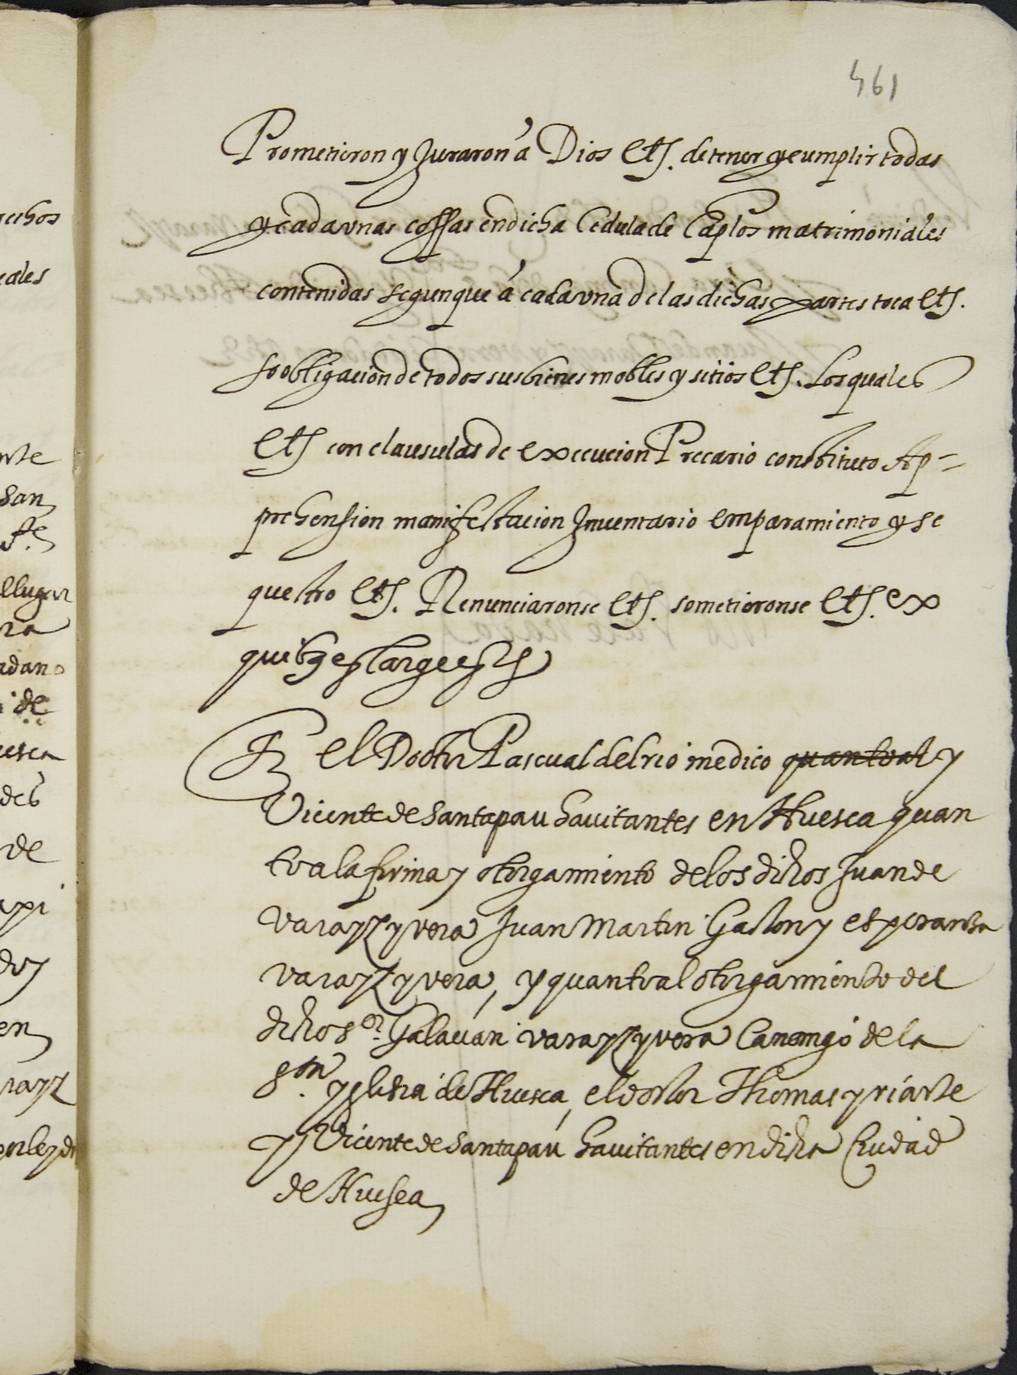 461
Prometieron y Juraron â Dios Etc. de tener y cumplir todas
y cada unas cossas en dicha Cedula de Caplos matrimoniales
contenidas segun que â cada una de las dichas partes toca Etc.
so obligacion de todos sus bienes mobles y sitios Etc. Los quales
Etc con clausulas de execucion Precario constituto Ap=
prehension manifestacion Inventario emparamiento y se
questro Etc. Renunciaronse Etc. sometieronse Etc. ex
quibs large
Ts El Doctor Pascual del rio medico quantoal y
Vicente de Santapau havitantes en Huesca quan
toala firma y otorgamiento de los dichos Juan de
varayz y vera Juan Martin Gaston y esperansa
varayz y vera, y quantoal otorgamiento del
dicho sor. Galavan varayz y vera Canongo de la
Sta. yglesia de Huesca, el doctor Thomas yriarte
y Vicente de Santapau havitantes en dicha Ciudad
de Huesca
echos
eales
arte
san
fe
el lugar
ra
adano
de
uesca
des
de
api
do y
en
rayz